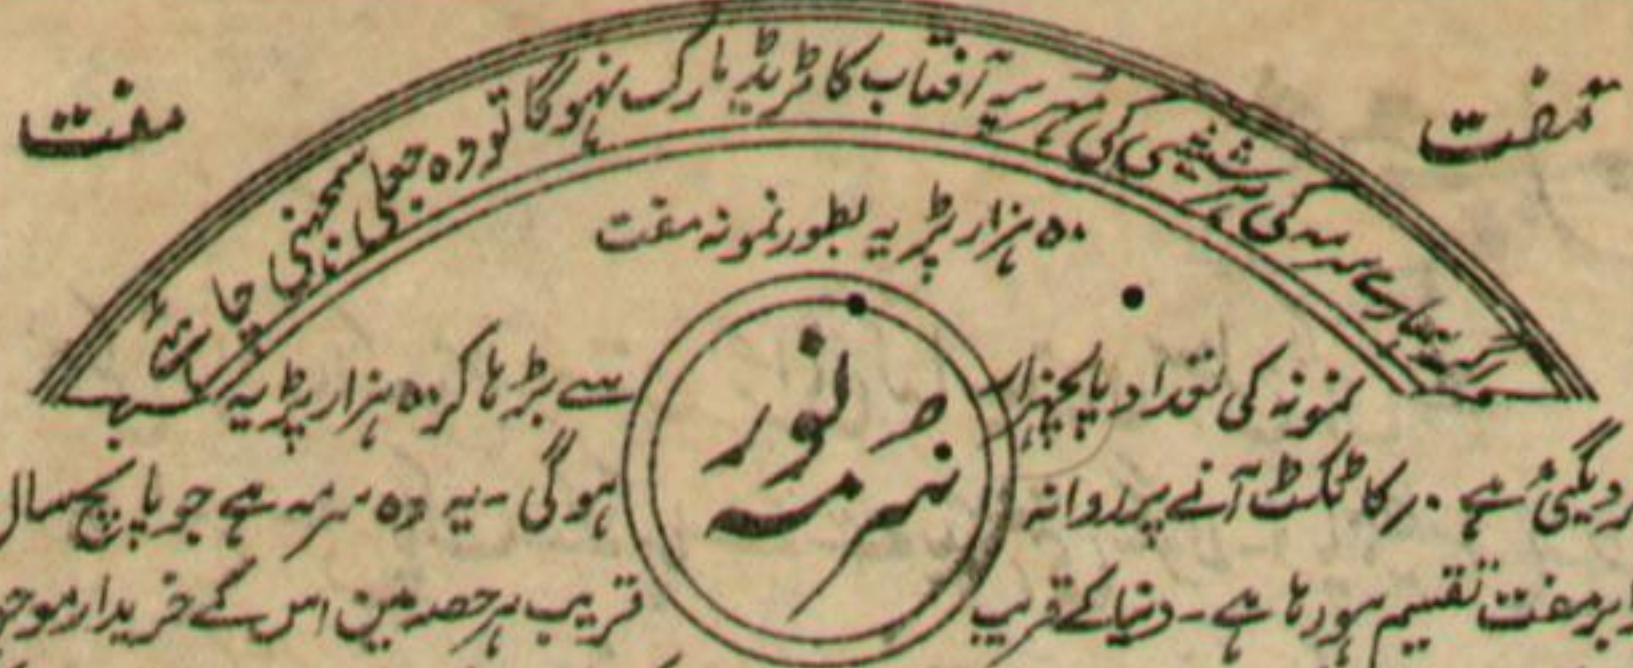 مفت
مفت
ہمارے سرمہ کی شیشی کی مہر پر آفتاب کا ٹریڈ مارک نہوگا تو وہ جعلی سمجھنی چاہئے
۵۰ ہزار پڑیہ بطور نمونہ مفت
سرمہ نور
نمونہ کی تعداد پانچہزار سے بڑہا کر ۵۰ ہزار پڑیہ
کردیگئی ہے ۔ ۱ر کا ٹکٹ آنے پر روانہ ہوگی ۔ یہ وہ سرمہ ہے جو پانچ سال
برمفت تقسیم ہورہا ہے ۔ دنیا کے قریب قریب ہر حصہ مین اس کے خریدار